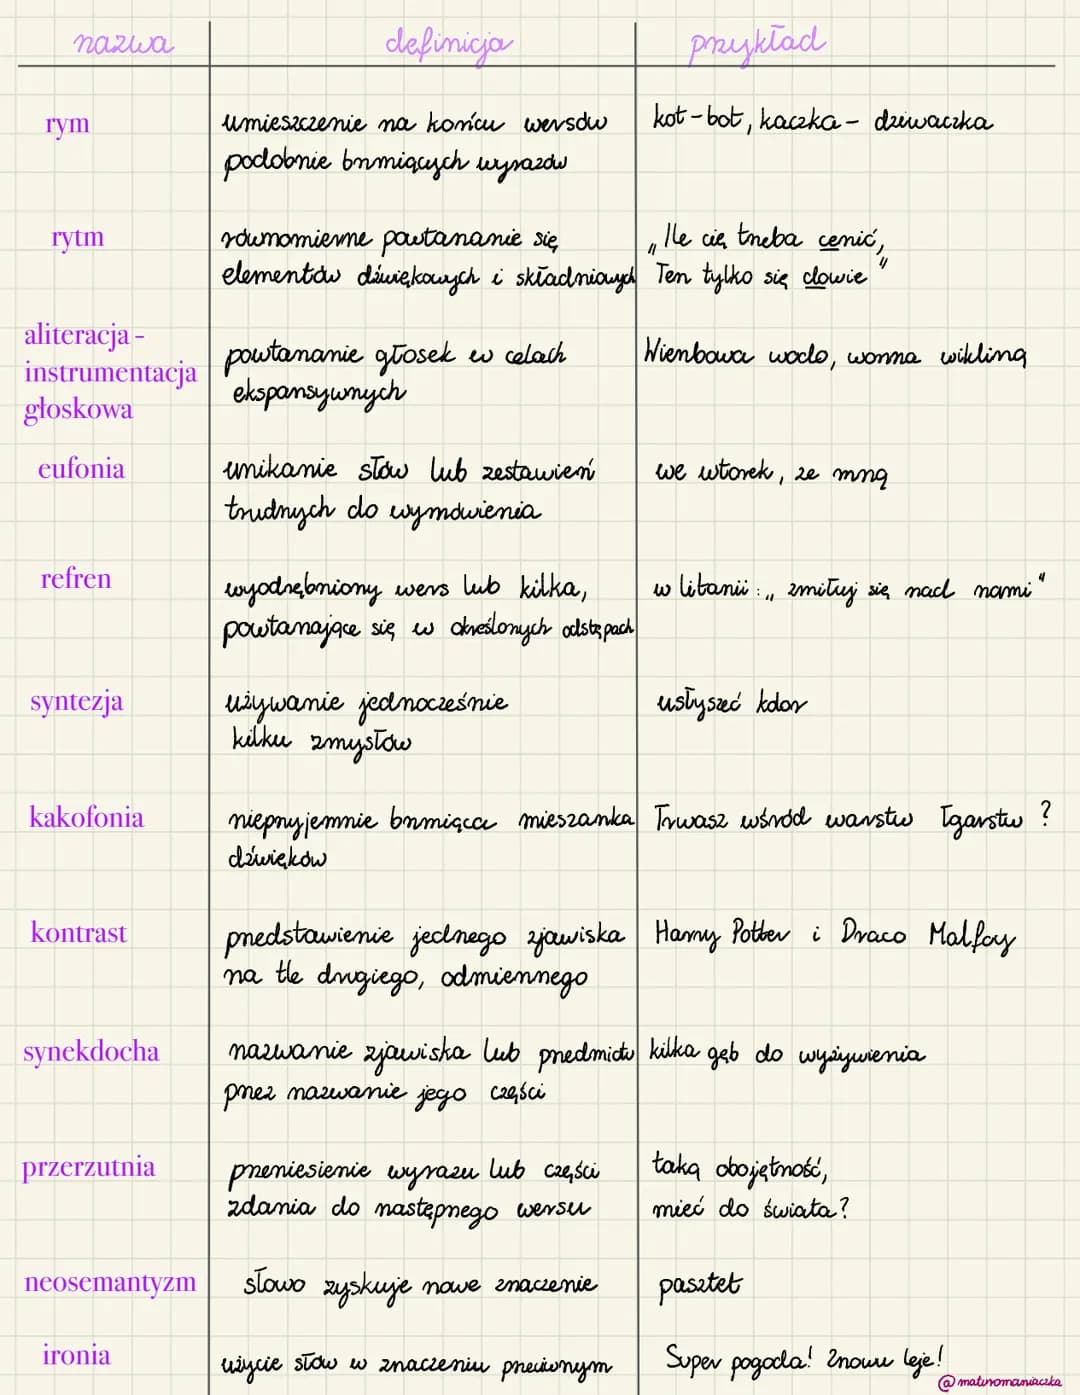 nazwa definicja przykład
rym umieszczenie na końcu wersów kot-bot, kaczka - dziwaczka
podobnie brzmiących wyrazów
rytm równomierne powtarzanie się „Ile cię trzeba cenić,
elementów dźwiękowych i składniowych Ten tylko się dowie"
aliteracja -
instrumentacja
głoskowa
powtarzanie głosek w celach Wierzbowa woda, wonna wikliną
ekspansywnych
eufonia unikanie słów lub zestawień we wtorek, ze mną
trudnych do wymówienia
refren wyodrębniony wers lub kilka, w litanii: „zmiłuj się nad nami"
powtarzające się w określonych odstępach
syntezja używanie jednocześnie usłyszeć kolor
kilku zmysłów
kakofonia nieprzyjemnie brzmiąca mieszanka Trwasz wśród warstw łgarstw?
dźwięków
kontrast przedstawienie jednego zjawiska Harry Potter i Draco Malfoy
na tle drugiego, odmiennego
synekdocha nazwanie zjawiska lub przedmiotu kilka gęb do wyżywienia
przez nazwanie jego części
przerzutnia przeniesienie wyrazu lub części taką obojętność,
zdania do następnego wersu mieć do świata?
neosemantyzm słowo zyskuje nowe znaczenie pasztet
ironia użycie słów w znaczeniu przeciwnym Super pogoda! Znowu leje!
@maturomaniaczka